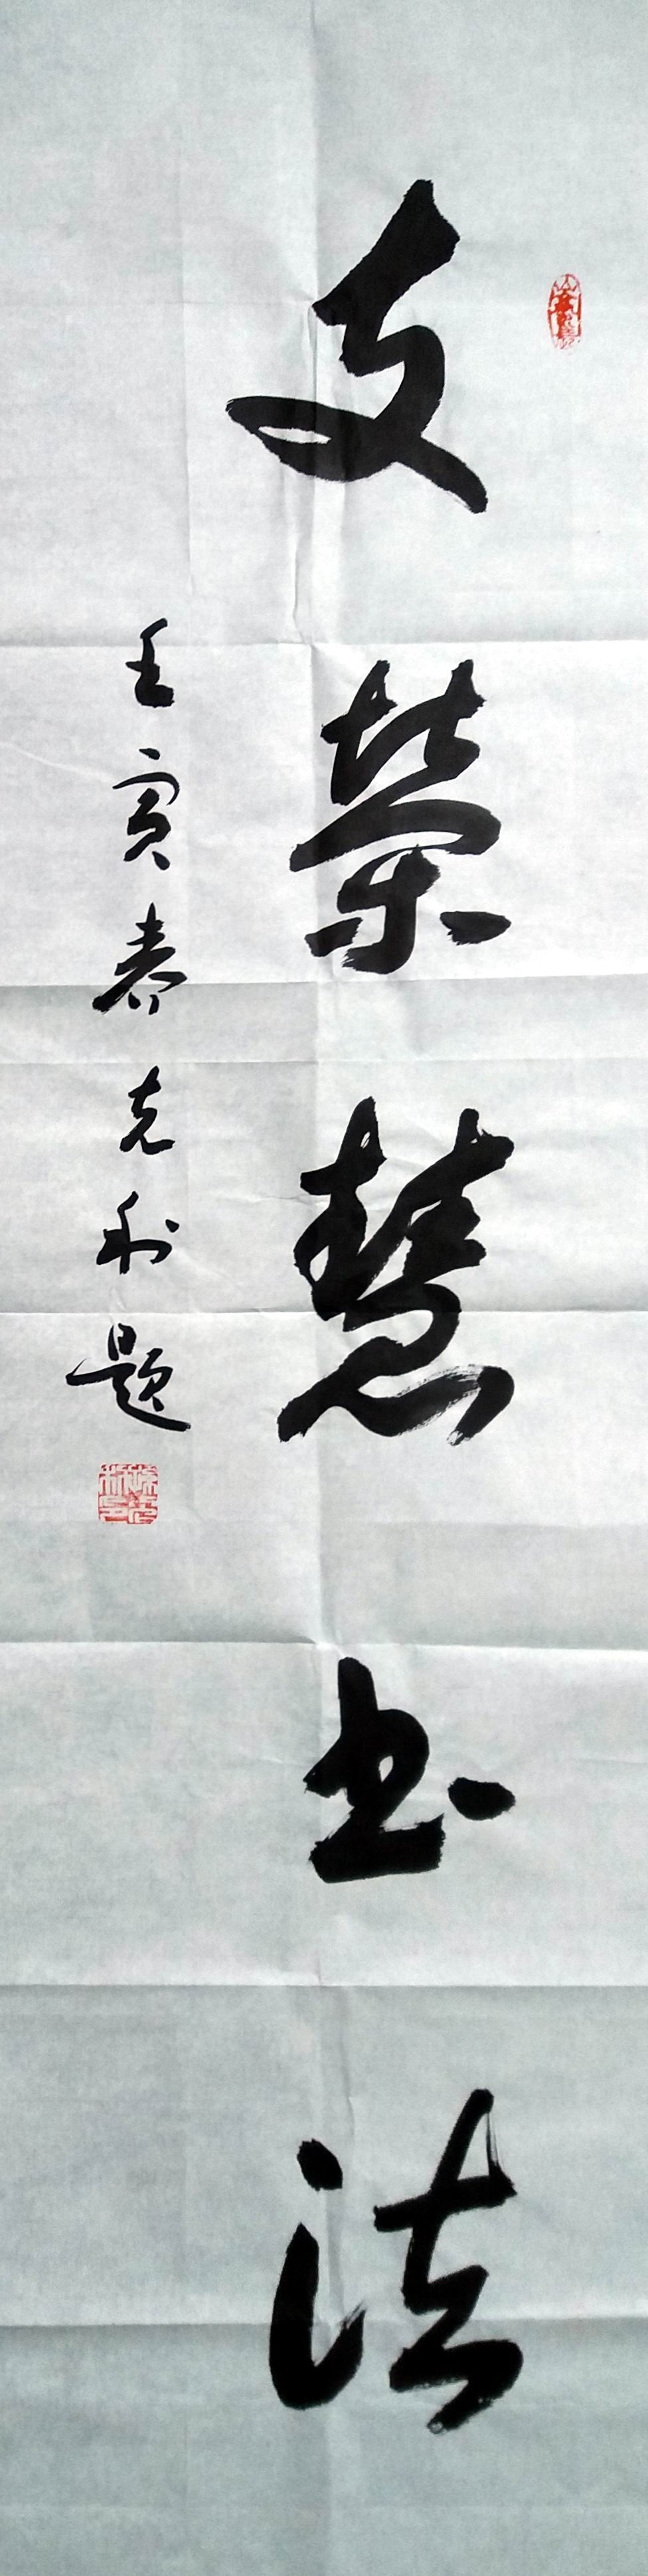 支荣慧书法
壬寅春克利题